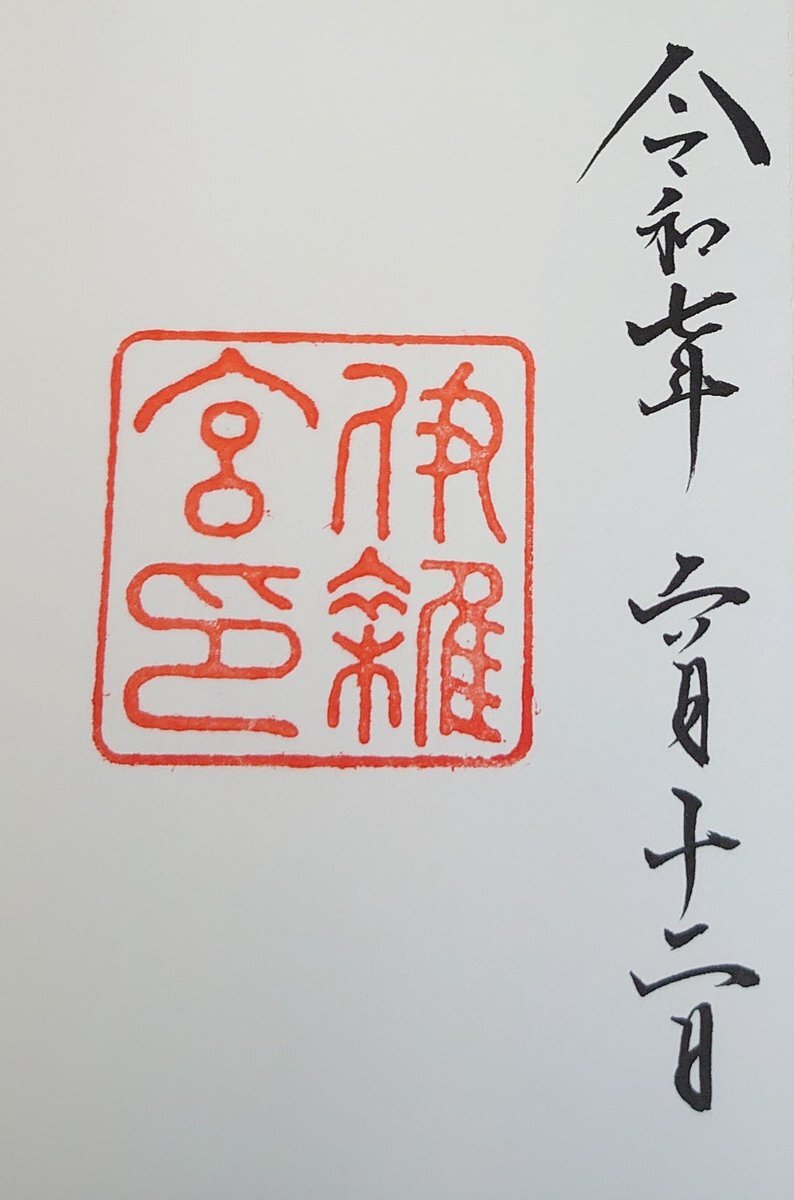 令和七年 六月十二日
伊雜
宮印